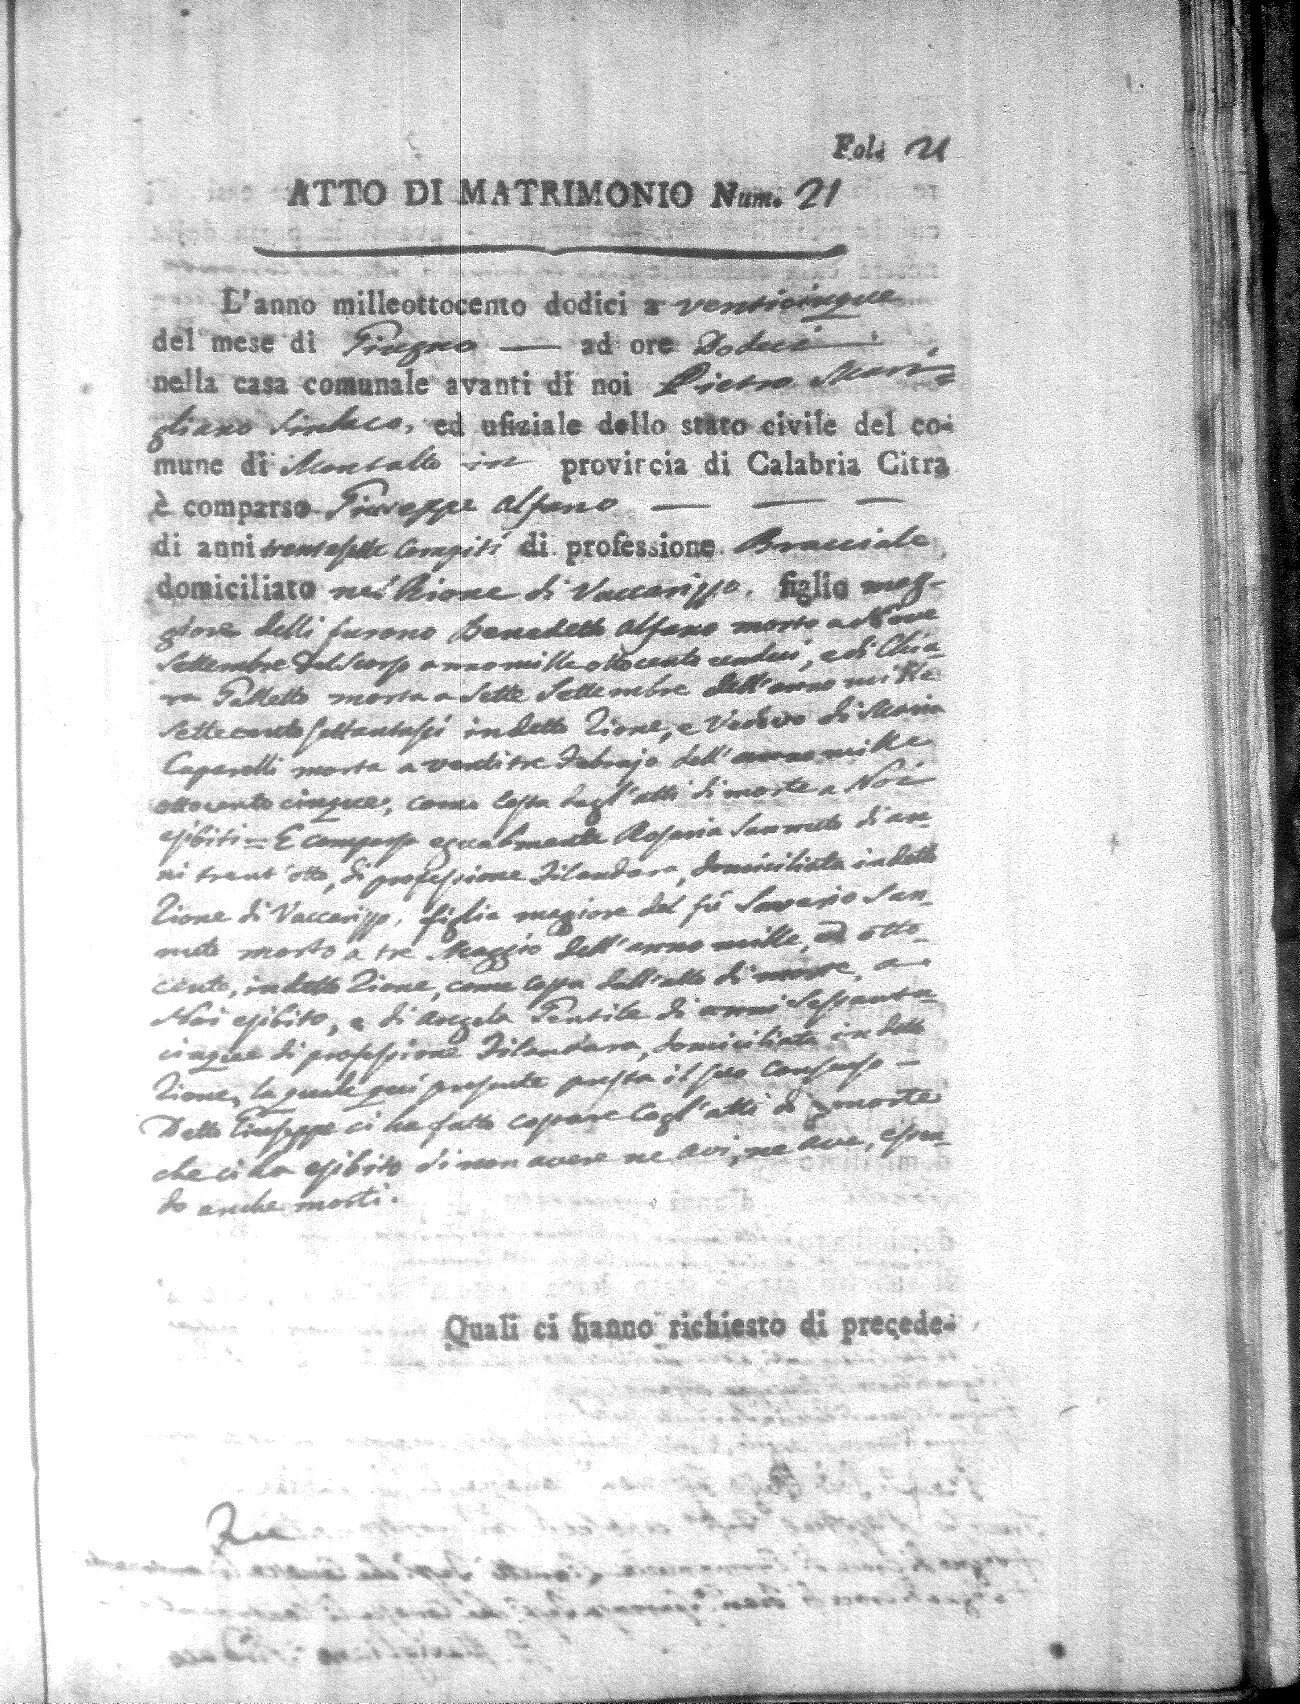 Fol. 21
ATTO DI MATRIMONIO Num. 21
L'anno milleottocento dodici a venticinque
del mese di Giugno — ad ore Dodici —
nella casa comunale avanti di noi Pietro Mari=
gliano Sindaco, ed ufiziale dello stato civile del co-
mune di Montalto in provincia di Calabria Citra
è comparso Giuseppe Alfano — — —
di anni trentasette compiti di professione Bracciale
domiciliato nel Rione di Vaccarizzo, figlio mag-
giore delli furono Benedetto Alfano morto a Nove
Settembre del scorso anno mille ottocento undeci, e di Chia-
ra morta a sette Settembre dell'anno mille
settecento settantasei in detto Rione, e Vedovo di Maria
Caparelli morta a ventitre Febrajo dell'anno mille
ottocento cinque, come costa dagl'atti di morte a Noi
esibiti = E comparsa egualmente Rosaria Sannuto di an-
ni trent'otto, di professione Filandara, domiciliata in detto
Rione di Vaccarizzo, figlia maggiore del fù Saverio San-
nuto morto a tre Maggio dell'anno mille, ed otto-
cento, in detto Rione, come costa dall'atto di morte, a
Noi esibito, e di Angela Gentile di anni Sessanta-
cinque di professione Filandara, domiciliata in detto
Rione, la quale quì presente presta il suo consenso —
Detto Giuseppe ci ha fatto costare cogl'atti di morte
che ci ha esibito di non avere ne avi, ne ave, essen-
do anche morti.
Quali ci hanno richiesto di precede-